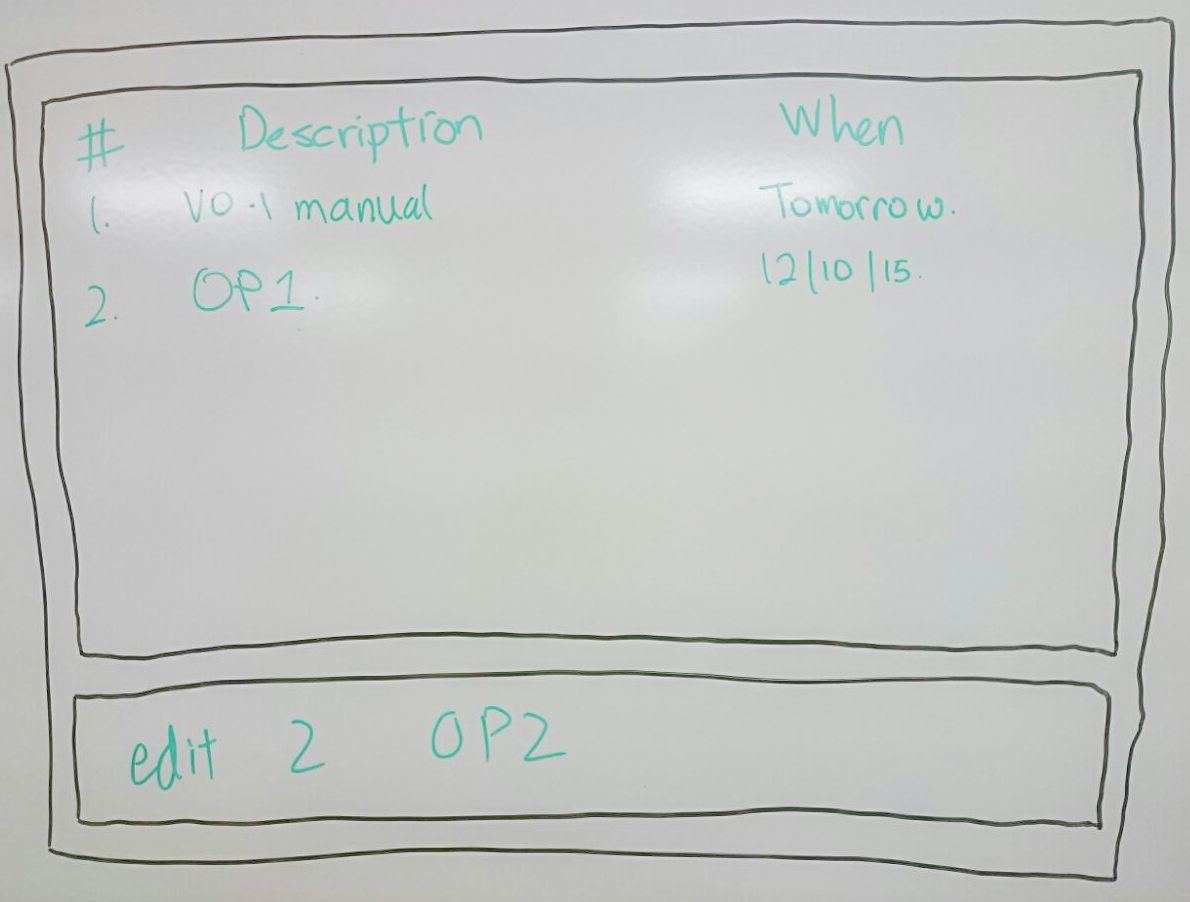 # Description When
1. V0.1 manual Tomorrow.
2. OP1. 12/10/15.
edit 2 OP2